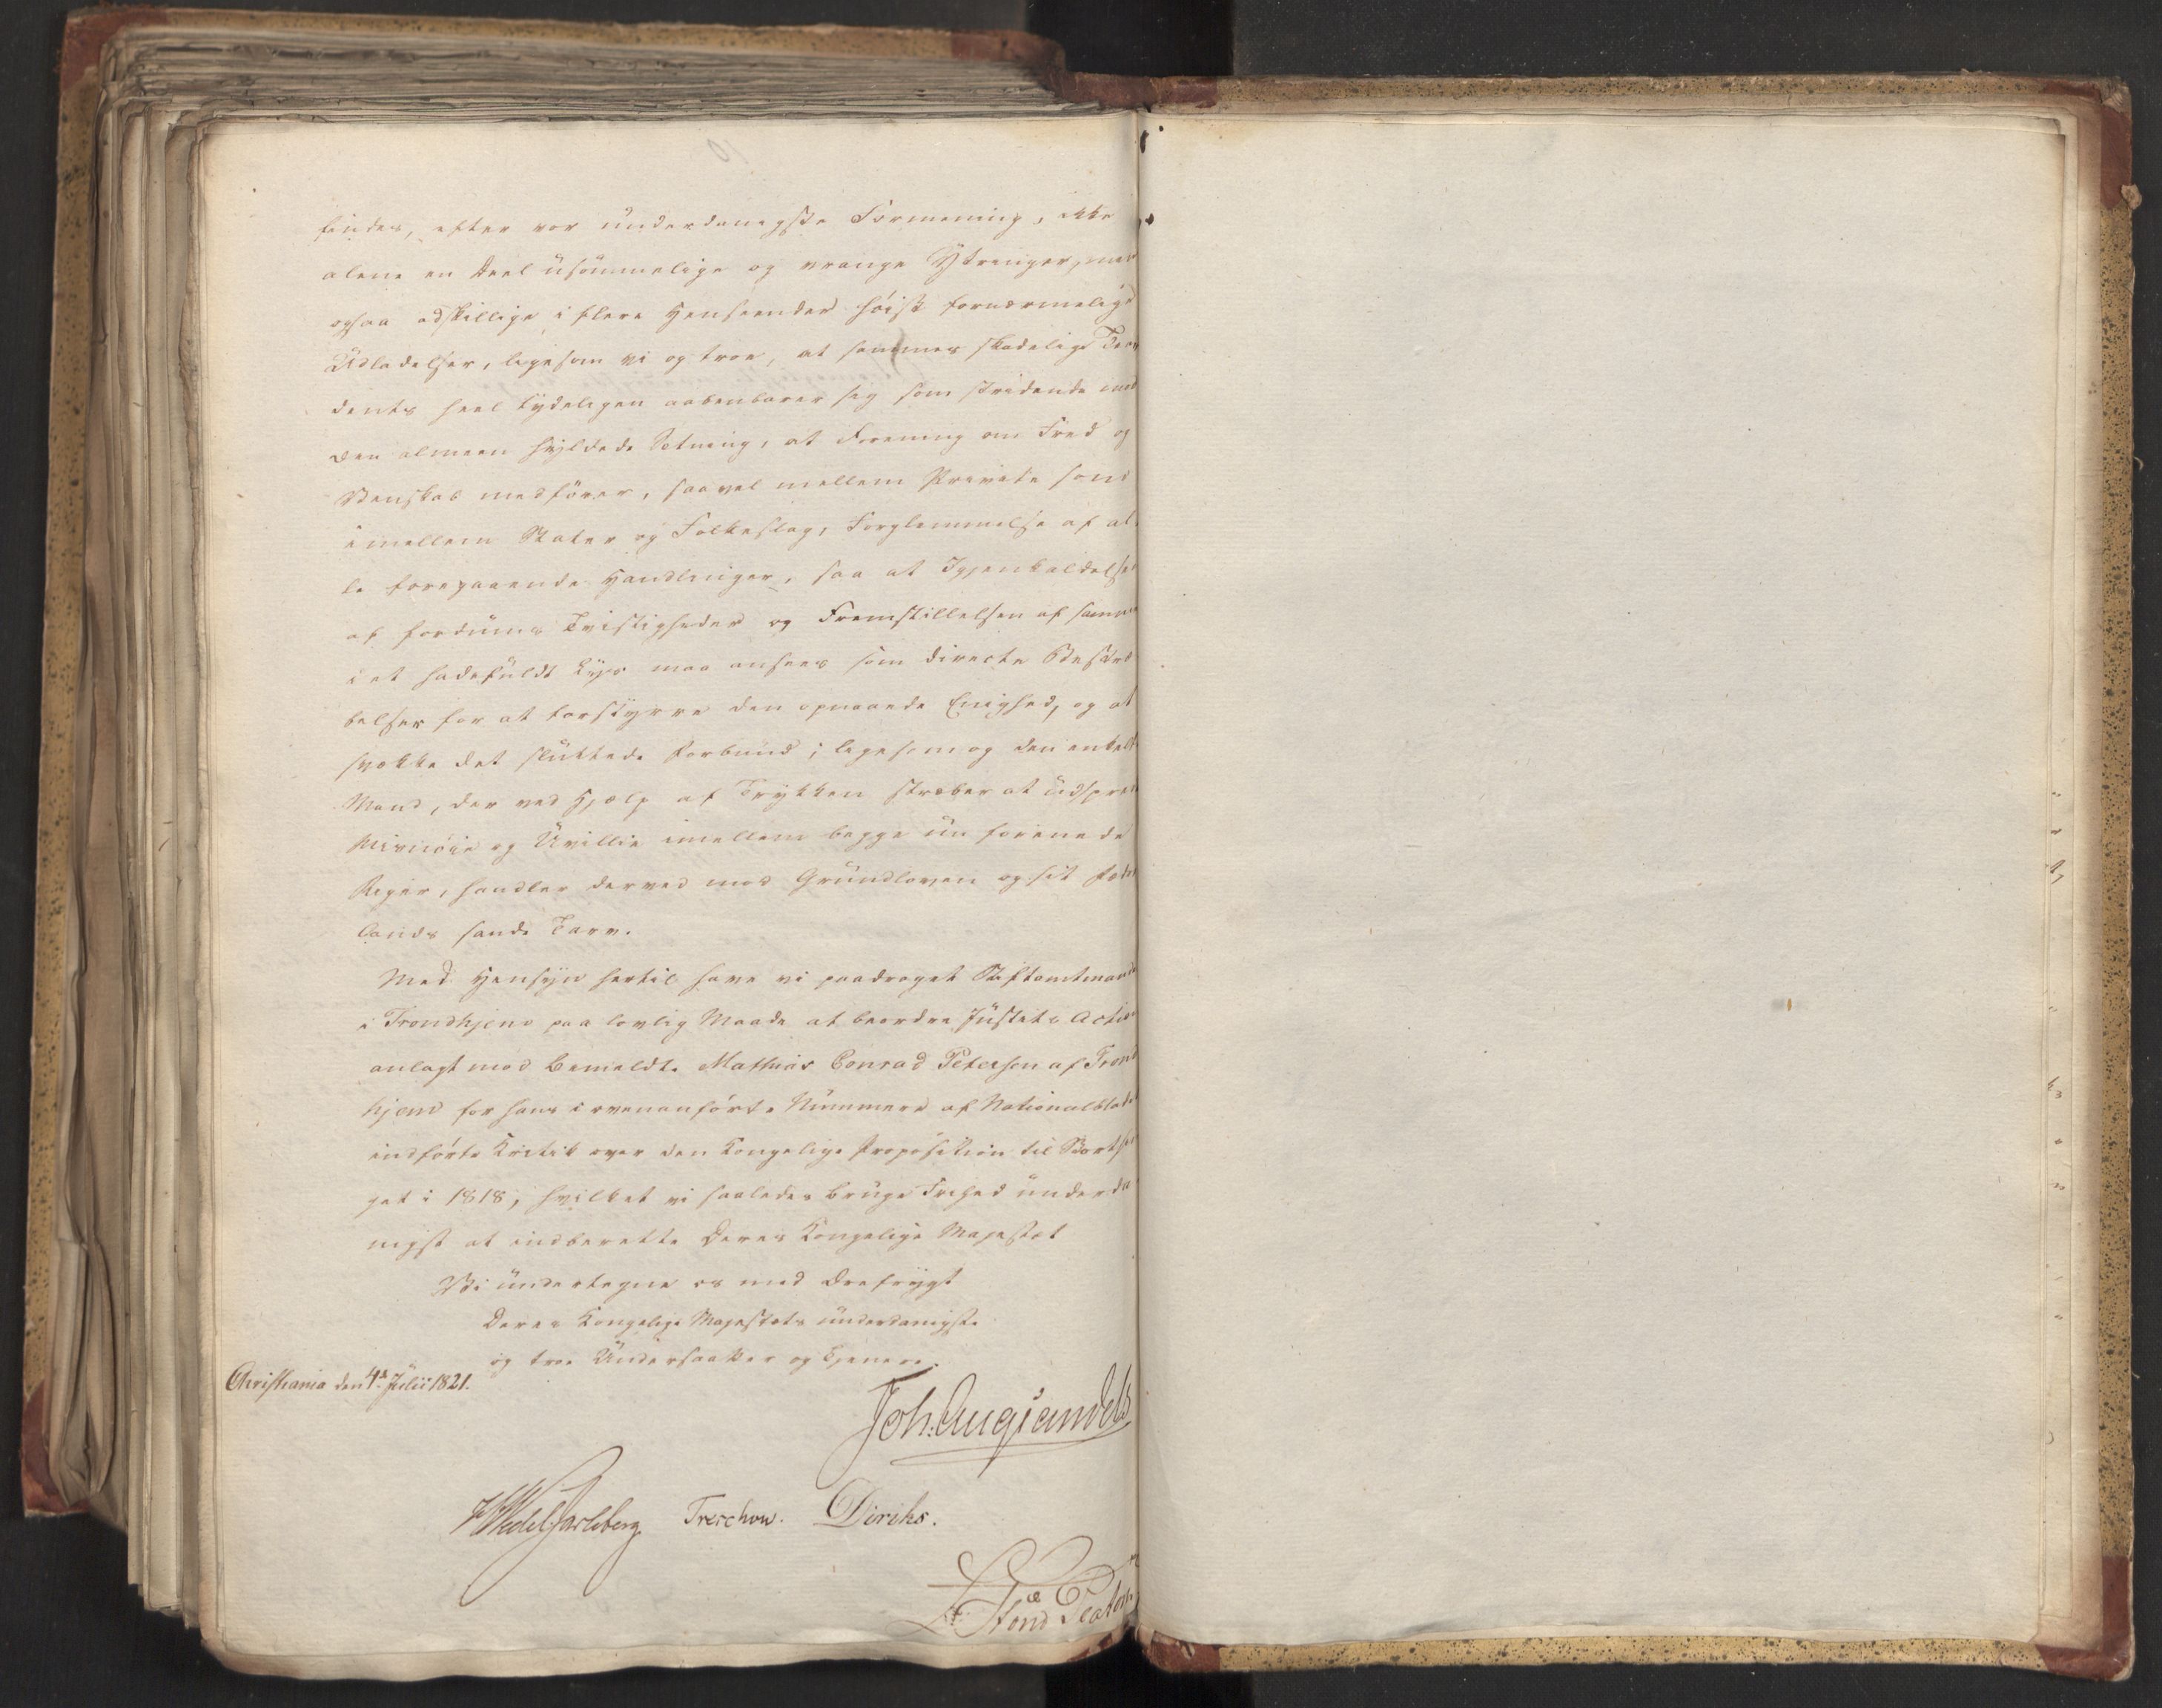 findes, efter vor underdanigste Formening, ikke
alene en Deel usømmelige og vrange Yttringer, men
ogsaa adskillige i flere Henseender høist fornærmelige
Udladelser, ligesom vi og troe, at sammes skadelige Ten
dents heel tydeligen aabenbarer sig som stridende imod
den almeen hyldede Sætning, at Forening om Fred og
Venskab medfører, saavel mellem Private som
imellem Stater og Folkeslag, Forglemmelse af al
le foregaaende Handlinger, saa at Igjenkaldelse
af fordums Tvistigheder og Fremstillelsen af samme
i et hadefuldt Lys maa ansees som directe Bestræ
belser for at forstyrre den opnaaede Enighed, og at
svække det sluttede Forbund; ligesom og den enkelte
Mand, der ved Hjælp af Trykken stræber at udsprede
Misnøie og Uvillie imellem begge nu forenede
Riger, handler derved mod Grundloven og sit Fædre
lands sande Tarv.
Med Hensyn hertil have vi paadraget Stiftamtmanden
i Trondhjem paa lovlig Maade at beordre Justits Action
anlagt mod bemeldte Mathias Conrad Petersen af Trond
hjem for hans i ovenanførte Nummere af Nationalbladet
indførte Kritik over den Kongelige Proposition til Storthin
get i 1818, hvilket vi saaledes bruge Frihed underda
nigst at indberette Deres Kongelige Majestæt
Vi undertegne os med Ærefrygt
Deres Kongelige Majestæts underdanigste
og troe Undersaatter og Tjenere.
Christiania den 4de Julii 1821.
Joh: Aug: Sandels
HWedel Jarlsberg Treschow. Diriks.